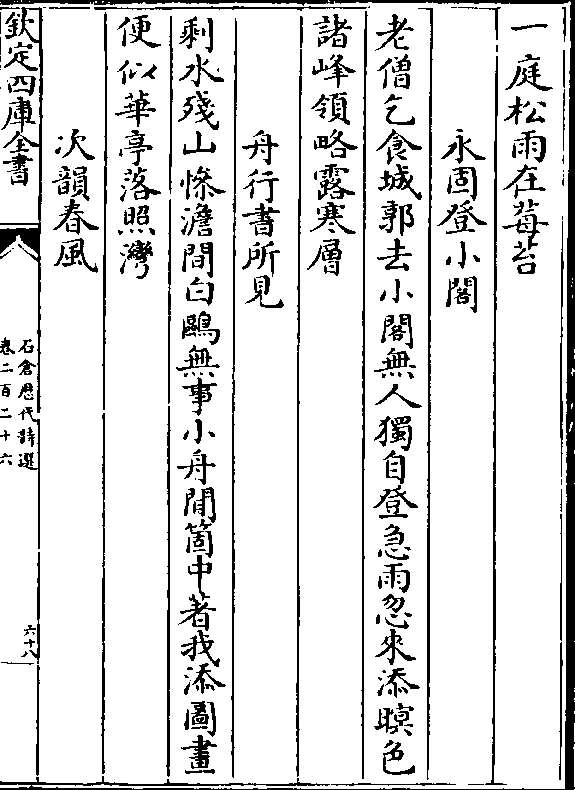 一庭松雨在莓苔
永固登小閣
老僧乞食城郭去小閣無人獨自登急雨忽來添暝色
諸峰領略露寒層
舟行書所見
剩水殘山慘澹間白鷗無事小舟閒箇中著我添圖畫
便似華亭落照灣
次韻春風
欽定四庫全書
石倉歷代詩選
卷二百二十六
六十八